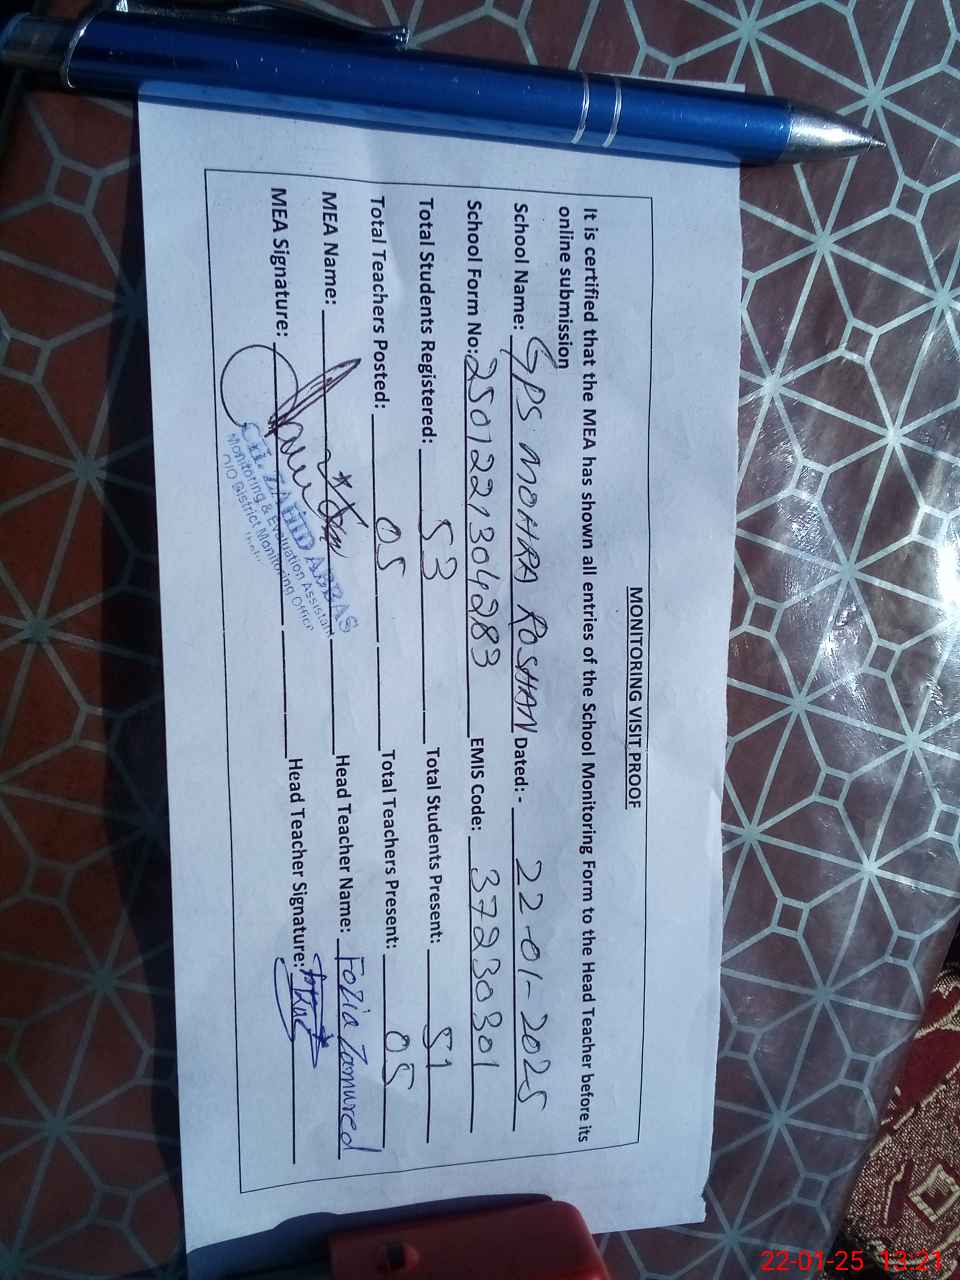 MONITORING VISIT PROOF
It is certified that the MEA has shown all entries of the School Monitoring Form to the Head Teacher before its
online submission
School Name: GPS MOHRA ROSHAN Dated:- 22-01-2025
School Form No: 2501221304283 EMIS Code: 37230301
Total Students Registered: 53 Total Students Present: 51
Total Teachers Posted: 05 Total Teachers Present: 05
MEA Name: Head Teacher Name: Fozia Zamured
MEA Signature: Head Teacher Signature:
CH. ZAHID ABBAS
Monitoring & Evaluation Assistant
O/O District Monitoring Officer
22-01-25 13:21